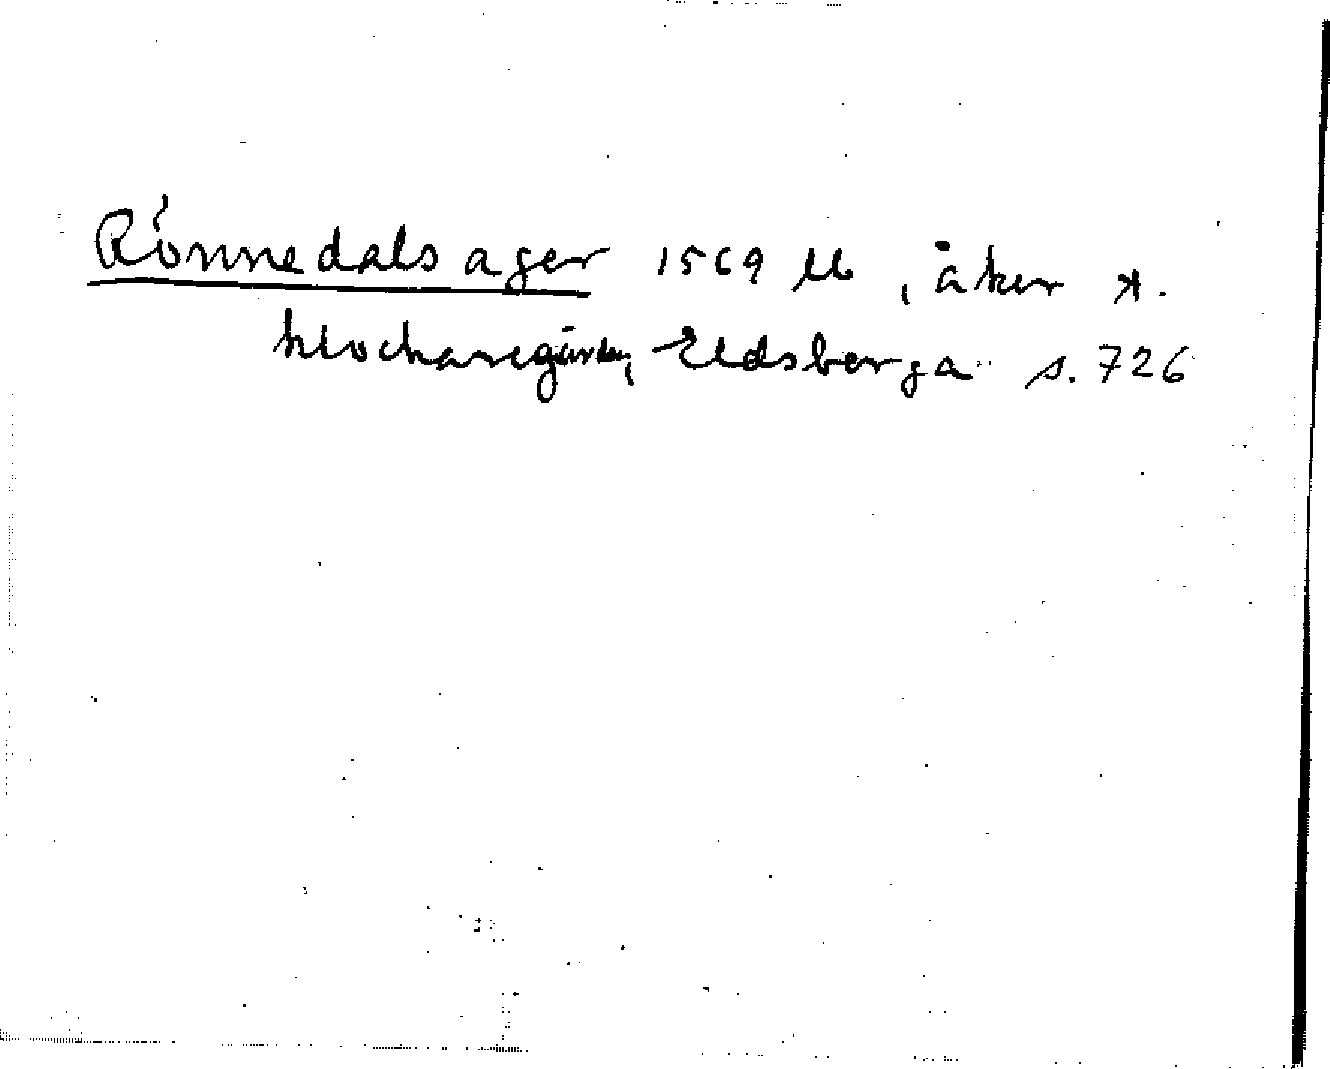 Rönnedals ager 1569 Lb, åker t.
klockaregården, Eldsberga s. 726